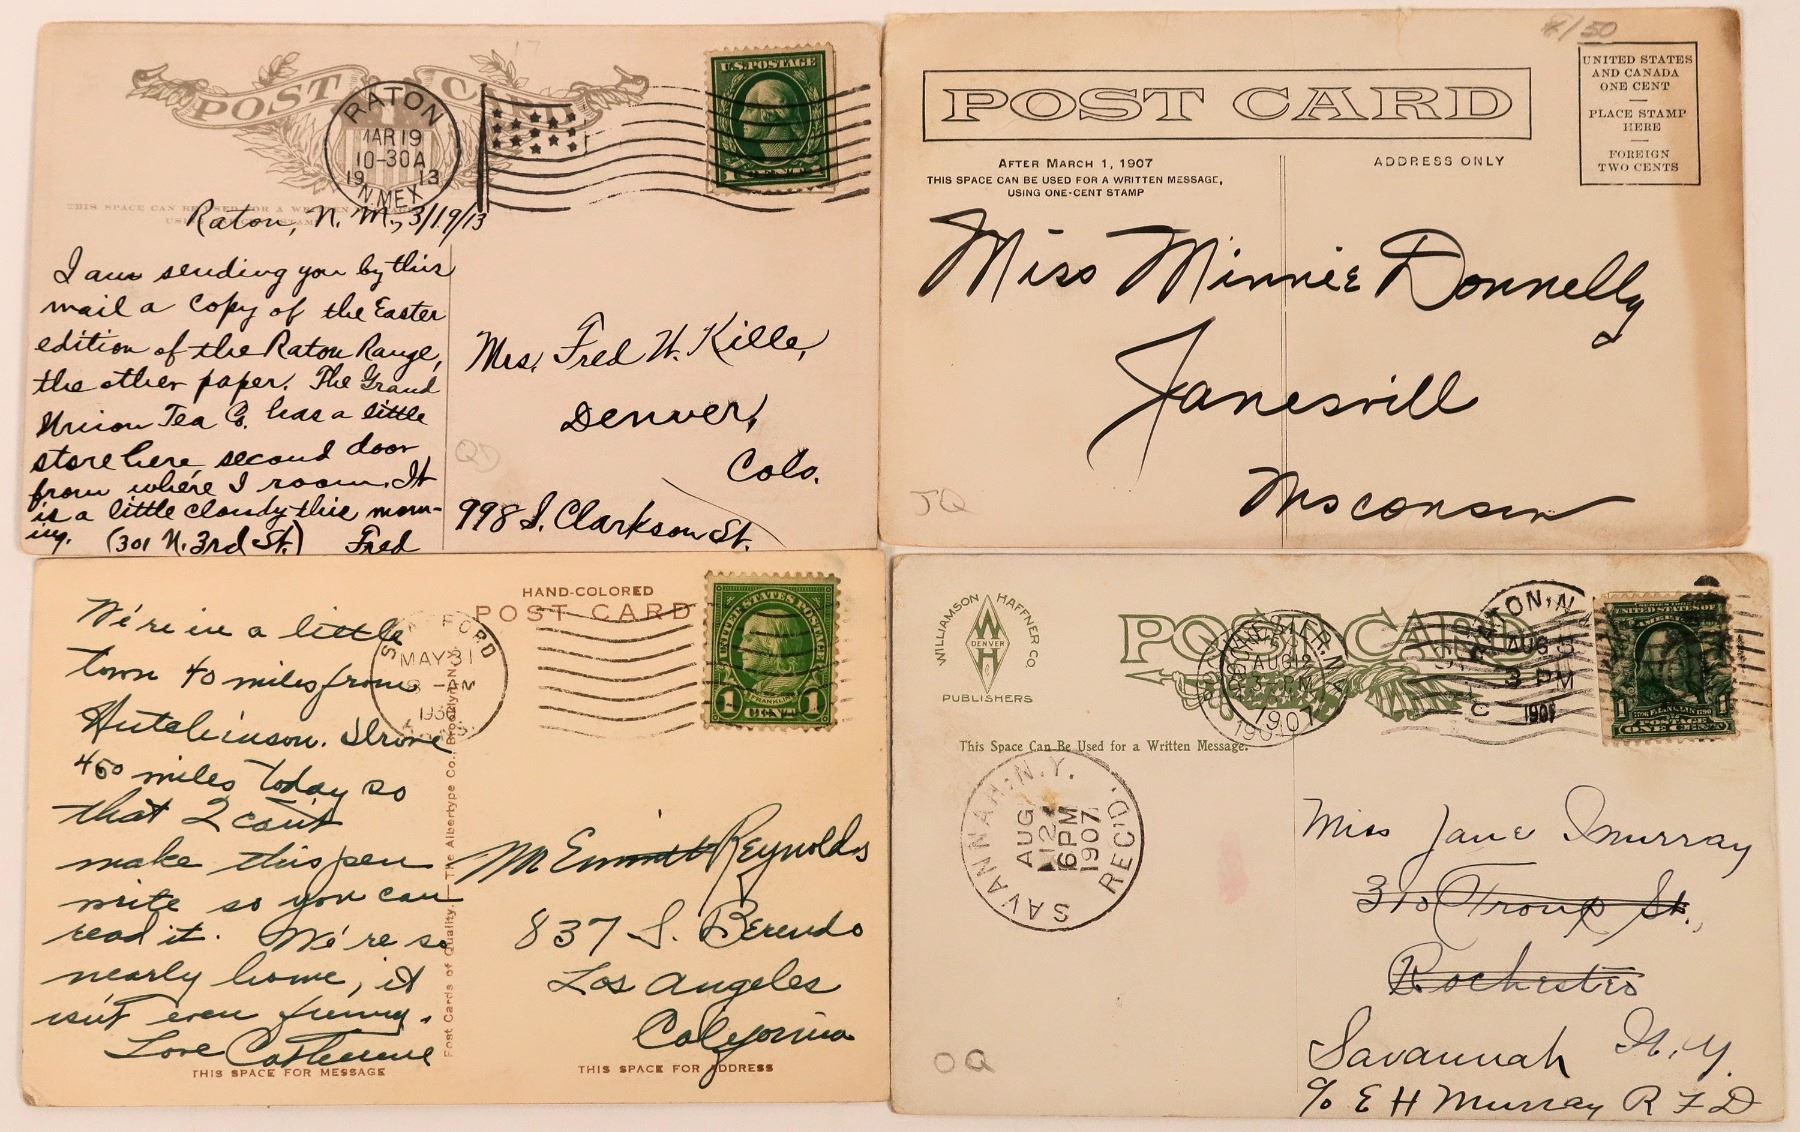 POST C
RATON
MAR 19
10-30 A
19 13
N. MEX.
U.S. POSTAGE
1 CENT 1
THIS SPACE CAN BE USED FOR A WRITTEN
Raton, N. M., 3/19/13
I am sending you by this
mail a copy of the Easter
edition of the Raton Range,
the other paper. The Grand
Union Tea Co. has a little
store here, second door
from where I room. It
is a little cloudy this morn-
ing. (301 N. 3rd St.) Fred
Mrs. Fred W. Kille,
Denver,
Colo.
998 S. Clarkson St.
QD
150
POST CARD
UNITED STATES
AND CANADA
ONE CENT
PLACE STAMP
HERE
FOREIGN
TWO CENTS
AFTER MARCH 1, 1907
THIS SPACE CAN BE USED FOR A WRITTEN MESSAGE,
USING ONE-CENT STAMP
ADDRESS ONLY
Miss Minnie Donnelly
Janesvill
Wisconsin
JQ
HAND-COLORED
POST CARD
MAY 31
UNITED STATES POSTAGE
FRANKLIN
1 CENT 1
We're in a little
town 40 miles from
Hutchinson. Drove
450 miles today so
that I can't
make this pen
write so you can
read it. We're so
nearly home, it
isn't even funny.
Love Catherine
THIS SPACE FOR MESSAGE
Post Cards of Quality. — The Albertype Co., Brooklyn, N.Y.
Mr Emmett Reynolds
837 S. Berendo
Los Angeles
California
THIS SPACE FOR ADDRESS
WILLIAMSON HAFFNER CO
W
DENVER
H
PUBLISHERS
POST CARD
AUG 12
1907
AUG
3 PM
1907
UNITED STATES OF
AMERICA
1 FRANKLIN 1
POSTAGE
ONE CENT
This Space Can Be Used for a Written Message.
SAVANNAH, N.Y.
AUG
12
6 PM
1907
REC'D.
Miss Jane Murray
315 Troup St.,
Rochester
Savannah N. Y.
c/o E H Murray R F D
OQ